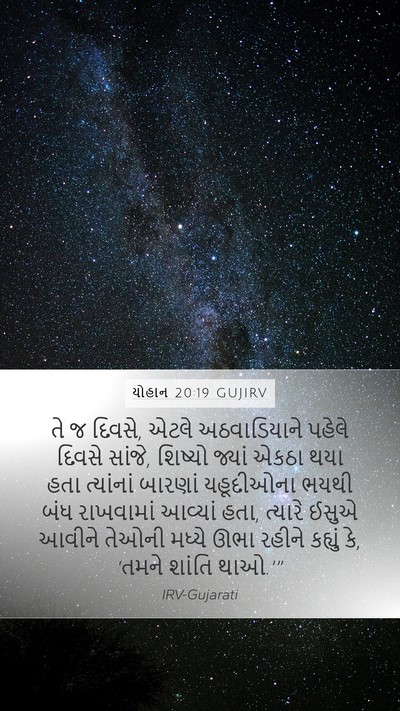 યોહાન 20:19 GUJIRV
તે જ દિવસે, એટલે અઠવાડિયાને પહેલે
દિવસે સાંજે, શિષ્યો જ્યાં એકઠા થયા
હતા ત્યાંનાં બારણાં યહૂદીઓના ભયથી
બંધ રાખવામાં આવ્યાં હતા, ત્યારે ઈસુએ
આવીને તેઓની મધ્યે ઊભા રહીને કહ્યું કે,
‘તમને શાંતિ થાઓ.’”
IRV-Gujarati